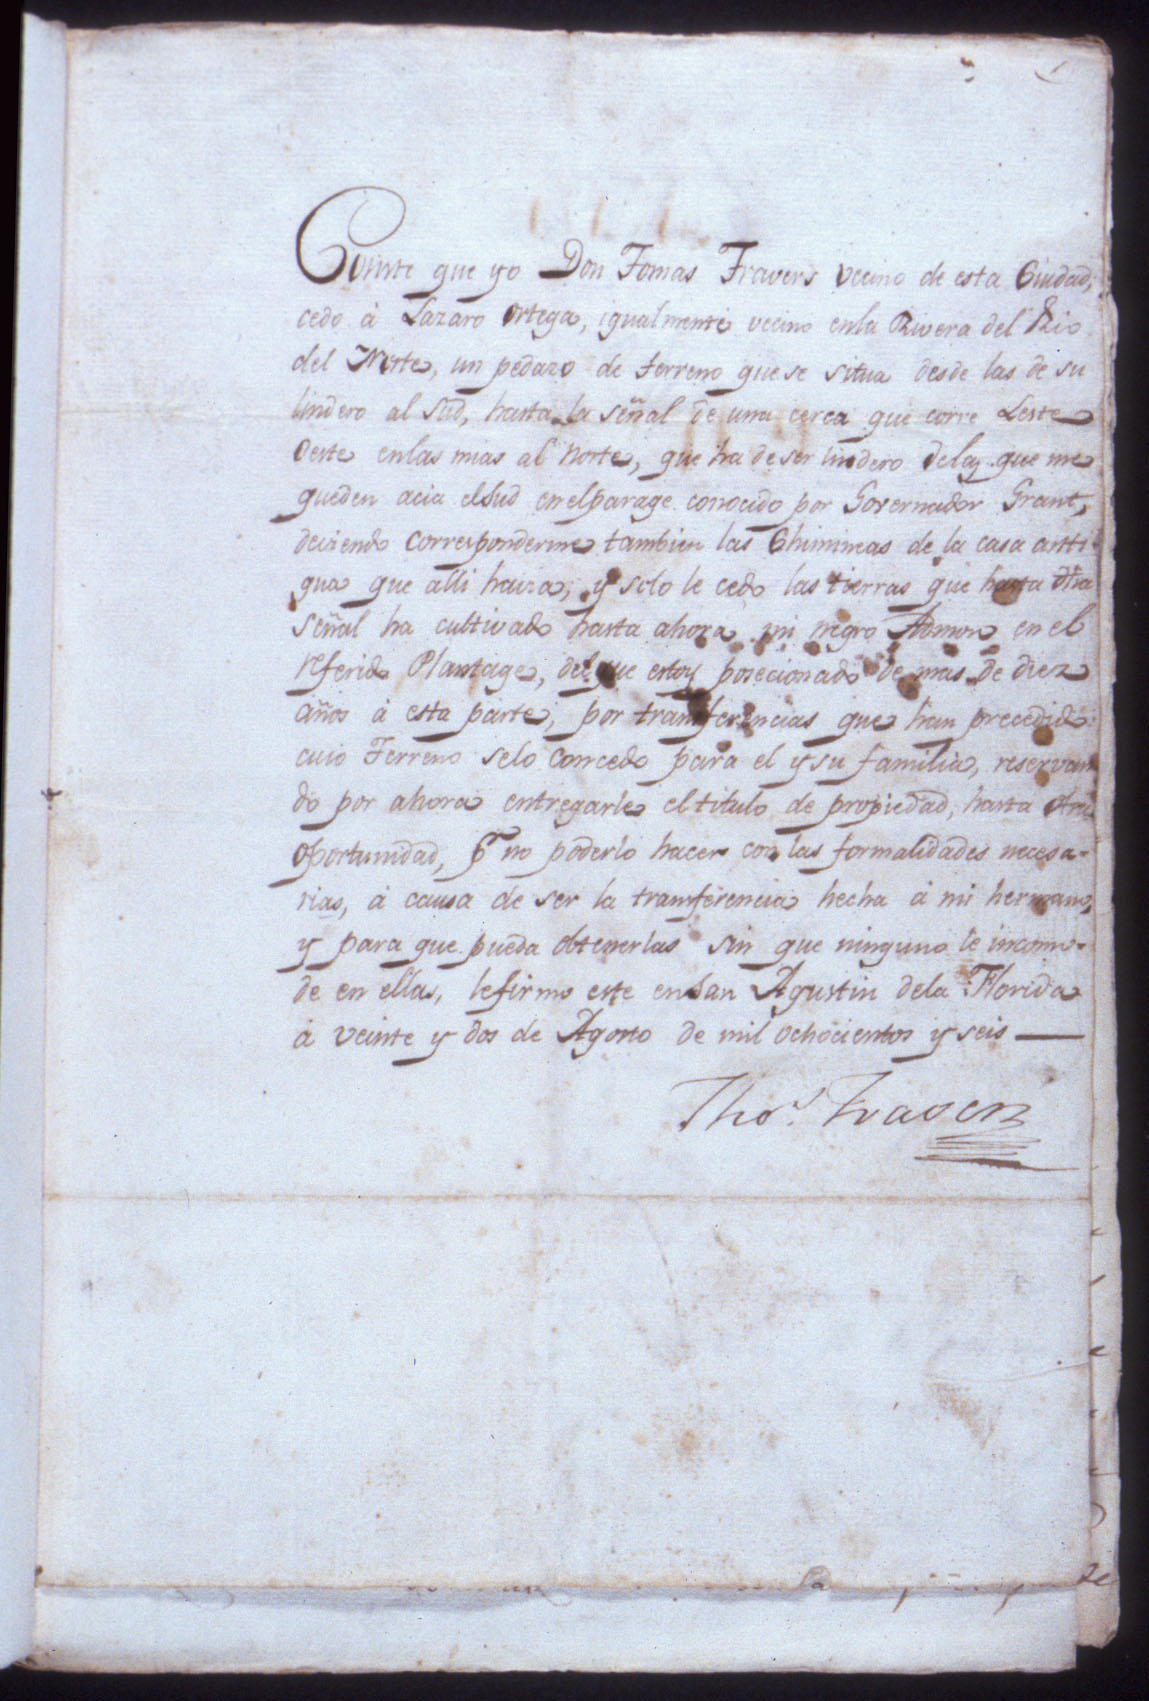 Conste que yo Don Tomas Travers vecino de esta Ciudad,
cedo à Lazaro Ortega, igualmente vecino enla Rivera del Rio
del Norte, un pedazo de terreno que se situa desde las de su
lindero al Sud, hasta la señal de una cerca que corre Leste
Oeste enlas mias al Norte, que ha de ser lindero delas que me
queden acia el Sud en el parage conocido por Governador Grant,
deviendo corresponderme tambien las Chimineas de la casa anti-
gua que alli havia, y solo le cedo las tierras que hasta dha
señal ha cultivado hasta ahora mi negro en el
referido Plantage, del que estoy posecionado de mas de diez
años à esta parte, por transferencias que han precedido:
cuio Terreno selo concedo para el y su familia, reservan
do por ahora entregarle el titulo de propiedad, hasta otra
oportunidad, pr no poderlo hacer con las formalidades necesa-
rias, à causa de ser la transferencia hecha à mi hermano,
y para que pueda obtenerlas sin que ninguno le incomo-
de en ellas, le firmo este en San Agustin dela Florida
à veinte y dos de Agosto de mil ochocientos y seis
Thos. Travers